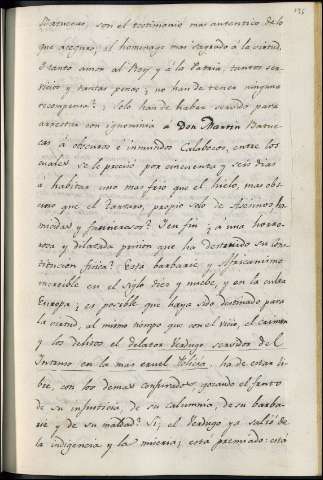 136
Batuecas, son el testimonio mas autentico de lo
que aseguro; el homenage mas sagrado á la virtud.
Y tanto amor al Rey y á la Patria, tantos ser-
vicios y tantas penas; no han de tener ninguna
recompensa?; solo han de haber servido para
arrestar con ignominia a Don Martin Batue-
cas á obscuros é inmundos Calabozos, entre los
cuales se le precisó por cincuenta y seis dias
á habitar uno mas frio que el hielo, mas obs-
curo que el Tartaro, propio solo de Asesinos ho-
micidas y facinerosos? Y en fin; á una horro-
rosa y dilatada prision que ha destruido su cons-
titucion fisica? Esta barbarie y Affricanismo
increible en el siglo diez y nuebe, y en la culta
Europa; es posible que haya sido destinado para
la virtud, al mismo tiempo que con el vicio, el crimen
y los delitos el delator Verdugo servidor del
Intruso en la mas cruel Policia, ha de estar li-
bre, con los demas conjurados, gozando el fruto
de su injusticia, de su calumnia, de su barba-
rie y de su maldad? Si; el Verdugo ya salió de
la indigencia y la miseria; está premiado: está